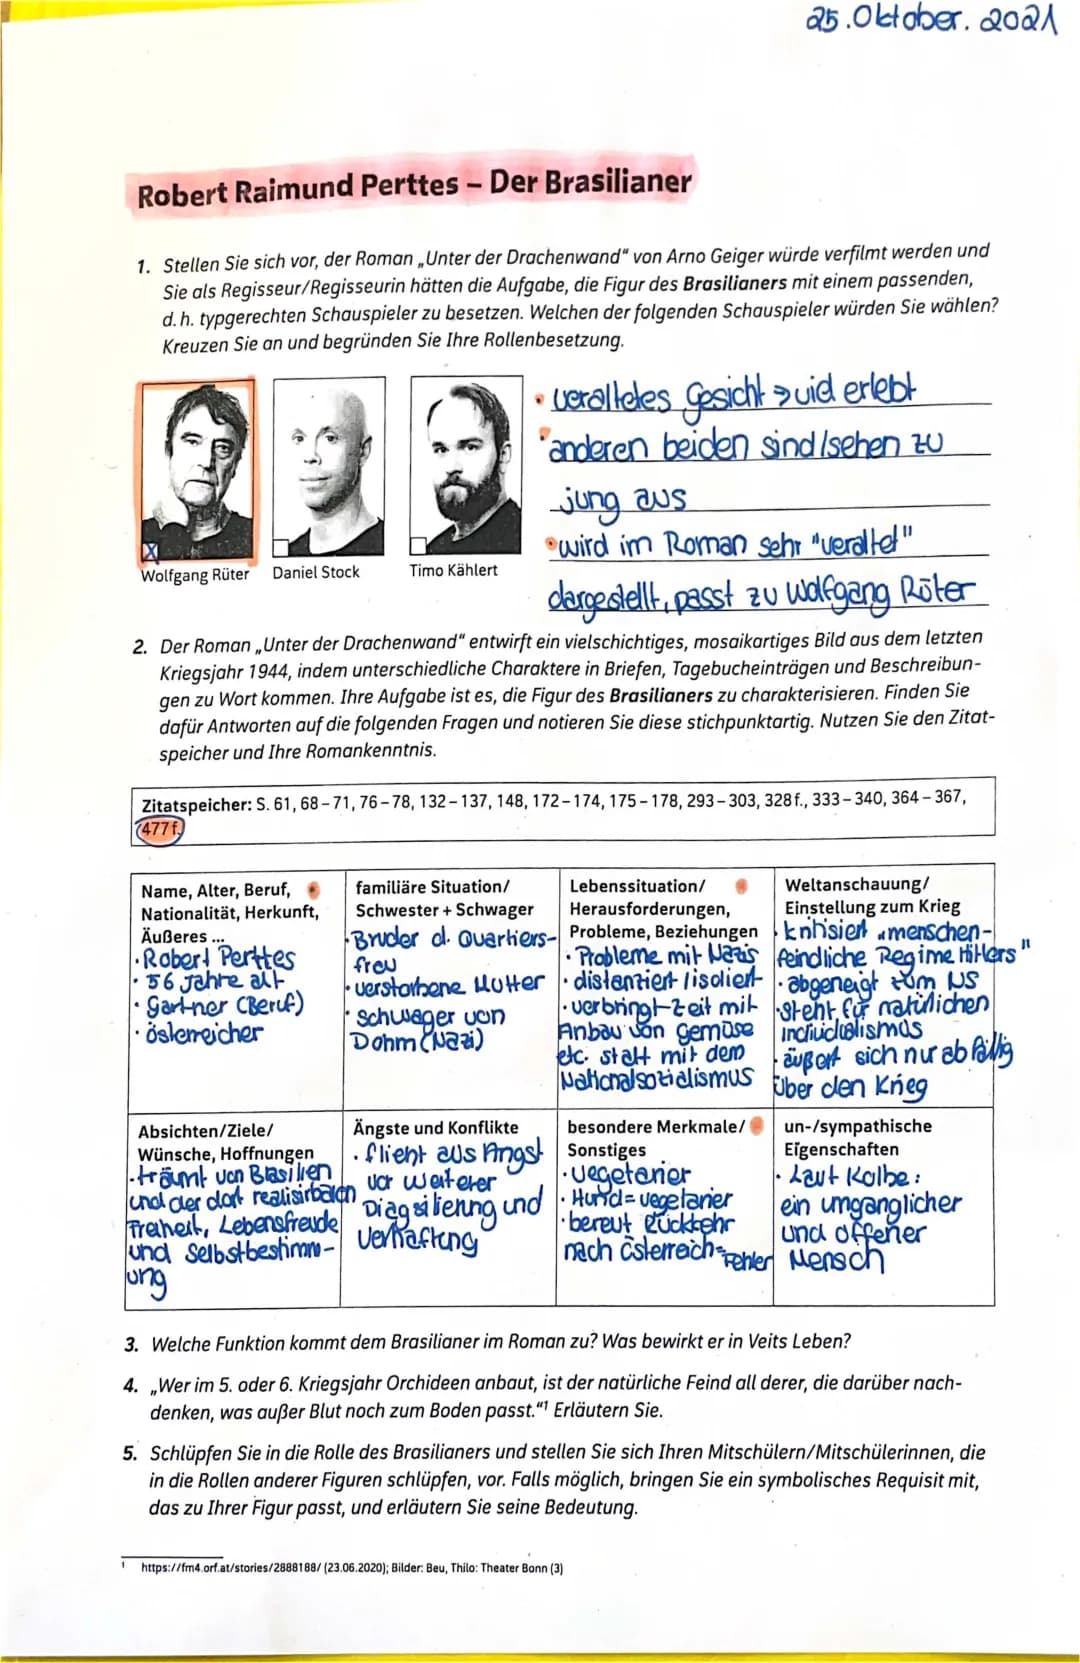 25.Oktober.2021
Robert Raimund Perttes – Der Brasilianer
1. Stellen Sie sich vor, der Roman „Unter der Drachenwand“ von Arno Geiger würde verfilmt werden und
Sie als Regisseur/Regisseurin hätten die Aufgabe, die Figur des Brasilianers mit einem passenden,
d. h. typgerechten Schauspieler zu besetzen. Welchen der folgenden Schauspieler würden Sie wählen?
Kreuzen Sie an und begründen Sie Ihre Rollenbesetzung.
• veraltetes Gesicht → viel erlebt
• anderen beiden sind/sehen zu
jung aus
• wird im Roman sehr "veraltet"
dargestellt, passt zu Wolfgang Rüter
Wolfgang Rüter
Daniel Stock
Timo Kählert
2. Der Roman „Unter der Drachenwand“ entwirft ein vielschichtiges, mosaikartiges Bild aus dem letzten
Kriegsjahr 1944, indem unterschiedliche Charaktere in Briefen, Tagebucheinträgen und Beschreibun-
gen zu Wort kommen. Ihre Aufgabe ist es, die Figur des Brasilianers zu charakterisieren. Finden Sie
dafür Antworten auf die folgenden Fragen und notieren Sie diese stichpunktartig. Nutzen Sie den Zitat-
speicher und Ihre Romankenntnis.
Zitatspeicher: S. 61, 68–71, 76–78, 132–137, 148, 172–174, 175–178, 293–303, 328 f., 333–340, 364–367,
477 f.
Name, Alter, Beruf,
Nationalität, Herkunft,
Äußeres ...
• Robert Perttes
• 56 Jahre alt
• Gärtner (Beruf)
• österreicher
familiäre Situation/
Schwester + Schwager
• Bruder d. Quartiers-
frau
• verstorbene Mutter
• Schwager von
Dohm (Nazi)
Lebenssituation/
Herausforderungen,
Probleme, Beziehungen
• Probleme mit Nazis
• distanziert/isoliert
• verbringt Zeit mit
Anbau von Gemüse
etc. statt mit dem
Nationalsozialismus
Weltanschauung/
Einstellung zum Krieg
• kritisiert „menschen-
feindliche Regime Hitlers"
• abgeneigt zum NS
• steht für natürlichen
Individualismus
• äußert sich nur abfällig
über den Krieg
Absichten/Ziele/
Wünsche, Hoffnungen
• träumt von Brasilien
und der dort realisirbaren
Freiheit, Lebensfreude
und Selbstbestimm-
ung
Ängste und Konflikte
• flieht aus Angst
vor weiterer
und
Verhaftung
besondere Merkmale/
Sonstiges
• Vegetarier
• Hund = vegetarier
• bereut Rückkehr
nach Österreich = Fehler
un-/sympathische
Eigenschaften
• Laut Kolbe:
ein umganglicher
und offener
Mensch
3. Welche Funktion kommt dem Brasilianer im Roman zu? Was bewirkt er in Veits Leben?
4. „Wer im 5. oder 6. Kriegsjahr Orchideen anbaut, ist der natürliche Feind all derer, die darüber nach-
denken, was außer Blut noch zum Boden passt.“¹ Erläutern Sie.
5. Schlüpfen Sie in die Rolle des Brasilianers und stellen Sie sich Ihren Mitschülern/Mitschülerinnen, die
in die Rollen anderer Figuren schlüpfen, vor. Falls möglich, bringen Sie ein symbolisches Requisit mit,
das zu Ihrer Figur passt, und erläutern Sie seine Bedeutung.
¹ https://fm4.orf.at/stories/2888188/ (23.06.2020); Bilder: Beu, Thilo: Theater Bonn (3)